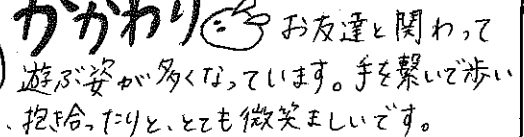 かかわり お友達と関わって
遊ぶ姿が多くなっています。手を繋いで歩い
、抱き合ったりと、とても微笑ましいです。